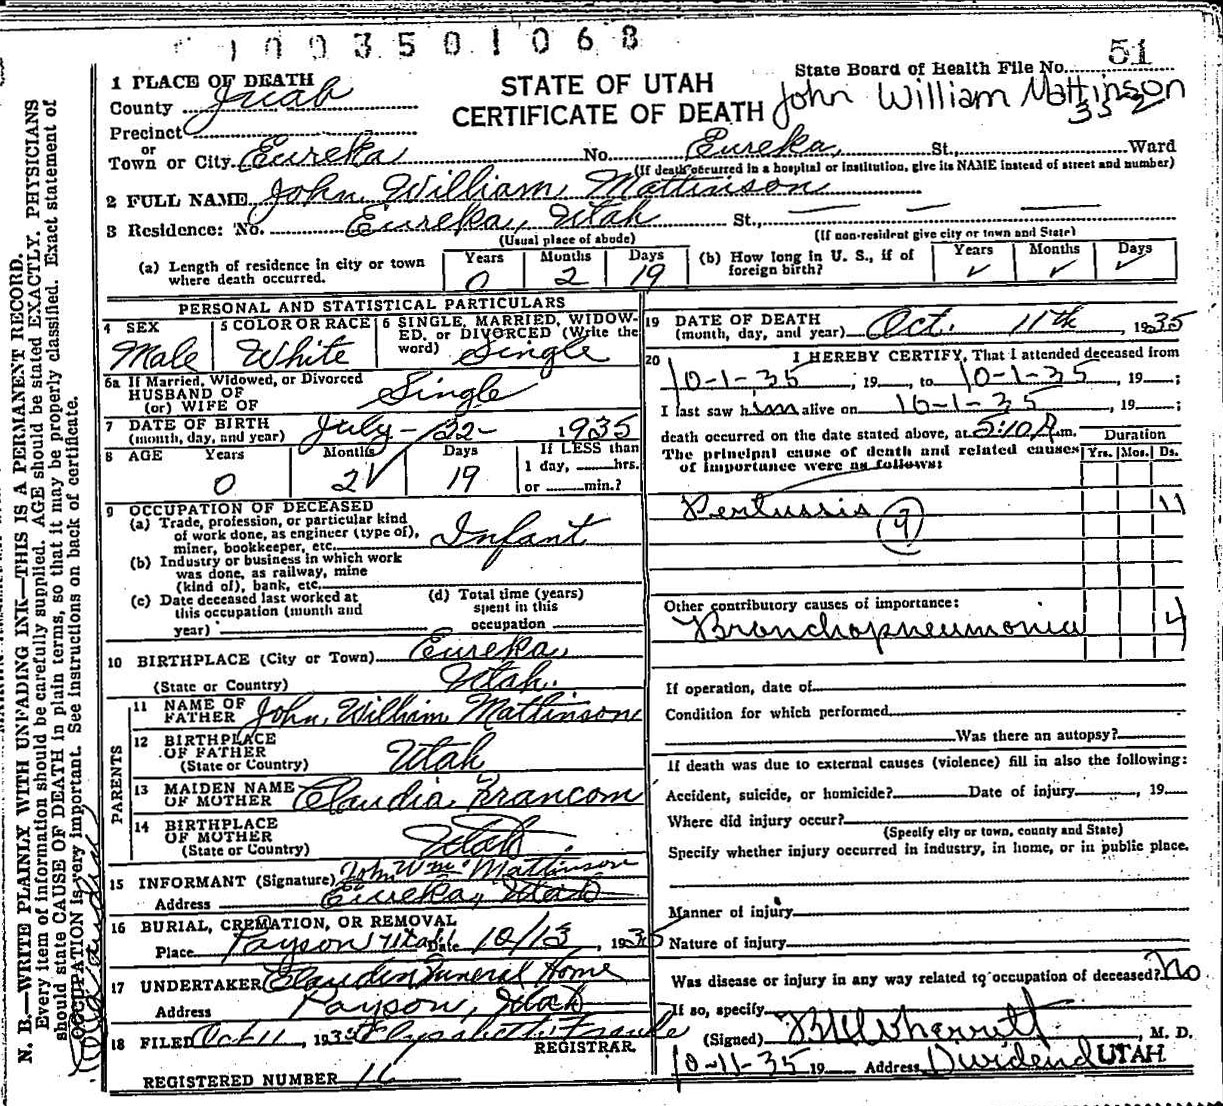 1003501068
51
1 PLACE OF DEATH
STATE OF UTAH
State Board of Health File No.
County Juab
CERTIFICATE OF DEATH
John William Mattinson
352
Precinct
or
Town or City Eureka No. Eureka, St., Ward
(If death occurred in a hospital or institution, give its NAME instead of street and number)
2 FULL NAME John William Mattinson
3 Residence: No. Eureka, Utah St.,
(Usual place of abode) (If non-resident give city or town and State)
(a) Length of residence in city or town where death occurred. Years 0 Months 2 Days 19
(b) How long in U. S., if of foreign birth? Years ✓ Months ✓ Days ✓
PERSONAL AND STATISTICAL PARTICULARS
4 SEX Male
5 COLOR OR RACE White
6 SINGLE, MARRIED, WIDOWED, OR DIVORCED (Write the word) Single
6a If Married, Widowed, or Divorced
HUSBAND OF
(or) WIFE OF Single
7 DATE OF BIRTH
(month, day, and year) July-22- 1935
8 AGE Years 0 Months 2 Days 19
If LESS than
1 day, hrs.
or min.?
9 OCCUPATION OF DECEASED
(a) Trade, profession, or particular kind
of work done, as engineer (type of),
miner, bookkeeper, etc. Infant
(b) Industry or business in which work
was done, as railway, mine
(kind of), bank, etc.
(c) Date deceased last worked at
this occupation (month and
year)
(d) Total time (years)
spent in this
occupation
10 BIRTHPLACE (City or Town) Eureka,
(State or Country) Utah.
PARENTS
11 NAME OF
FATHER John William Mattinson
12 BIRTHPLACE
OF FATHER
(State or Country) Utah
13 MAIDEN NAME
OF MOTHER Claudia Francom
14 BIRTHPLACE
OF MOTHER
(State or Country) Utah
15 INFORMANT (Signature) John Wm Mattinson
Address Eureka, Utah
16 BURIAL, CREMATION, OR REMOVAL
Place Payson Utah Date 10/13, 1935
17 UNDERTAKER Funeral Home
Address Payson, Utah
18 FILED Oct 11, 1935
REGISTRAR.
REGISTERED NUMBER 16
19 DATE OF DEATH
(month, day, and year) Oct. 11th, 1935
20 I HEREBY CERTIFY, That I attended deceased from
10-1-35; 19, to 10-1-35, 19;
I last saw him alive on 10-1-35, 19;
death occurred on the date stated above, at 5:10 A.m. Duration
The principal cause of death and related causes Yrs. Mos. Ds.
of importance were as follows:
Pertussis 11
9
Other contributory causes of importance:
Bronchopneumonia 4
If operation, date of
Condition for which performed
Was there an autopsy?
If death was due to external causes (violence) fill in also the following:
Accident, suicide, or homicide? Date of injury, 19
Where did injury occur?
(Specify city or town, county and State)
Specify whether injury occurred in industry, in home, or in public place.
Manner of injury
Nature of injury
Was disease or injury in any way related to occupation of deceased? No
If so, specify
(Signed) M. D.
10-11-35 19 Address Dividend UTAH
N. B.—WRITE PLAINLY WITH UNFADING INK—THIS IS A PERMANENT RECORD.
Every item of information should be carefully supplied. AGE should be stated EXACTLY. PHYSICIANS
should state CAUSE OF DEATH in plain terms, so that it may be properly classified. Exact statement of
OCCUPATION is very important. See instructions on back of certificate.